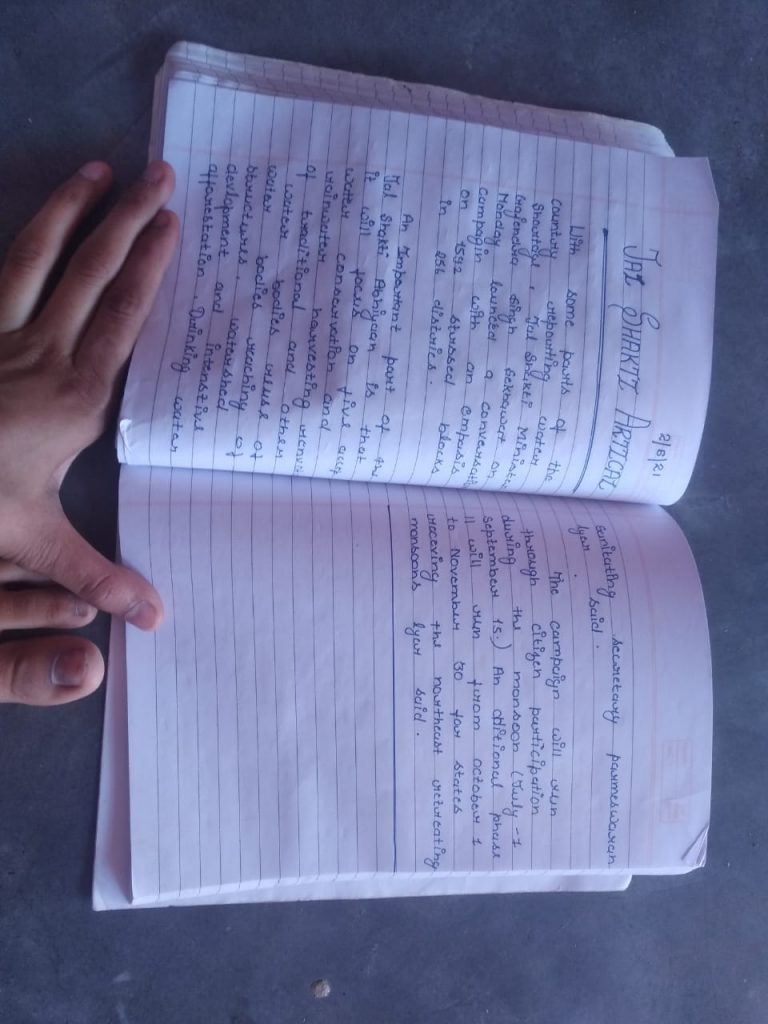 2/8/21
JAL SHAKTI ARTICAL
With some parts of the
country reporting water
shortage, Jal Shakti Minister
Gajendra Singh Sekhawat on
Monday launced a conversation
campagin with an emphasis
on 1592 stressed blocks
in 256 districs.
An Important part of the
Jal Shakti Abhiyaan is that
it will focus on five accp
water conservation and
rainwater harvesting renva
of traditional and other
water bodies reuse of
water bodies reaching of
structures. watershed
devlopment and intensive
afforestation. Drinking water
sanitating secretary parmeswaran
Iyar. said.
The campaign will run
through citizen participation
during the monsoon (July-1
september 15.) An ditional phase
11 will run from october 1
to November 30 for states
receving the northeast retreating
monsoons Iyar said.